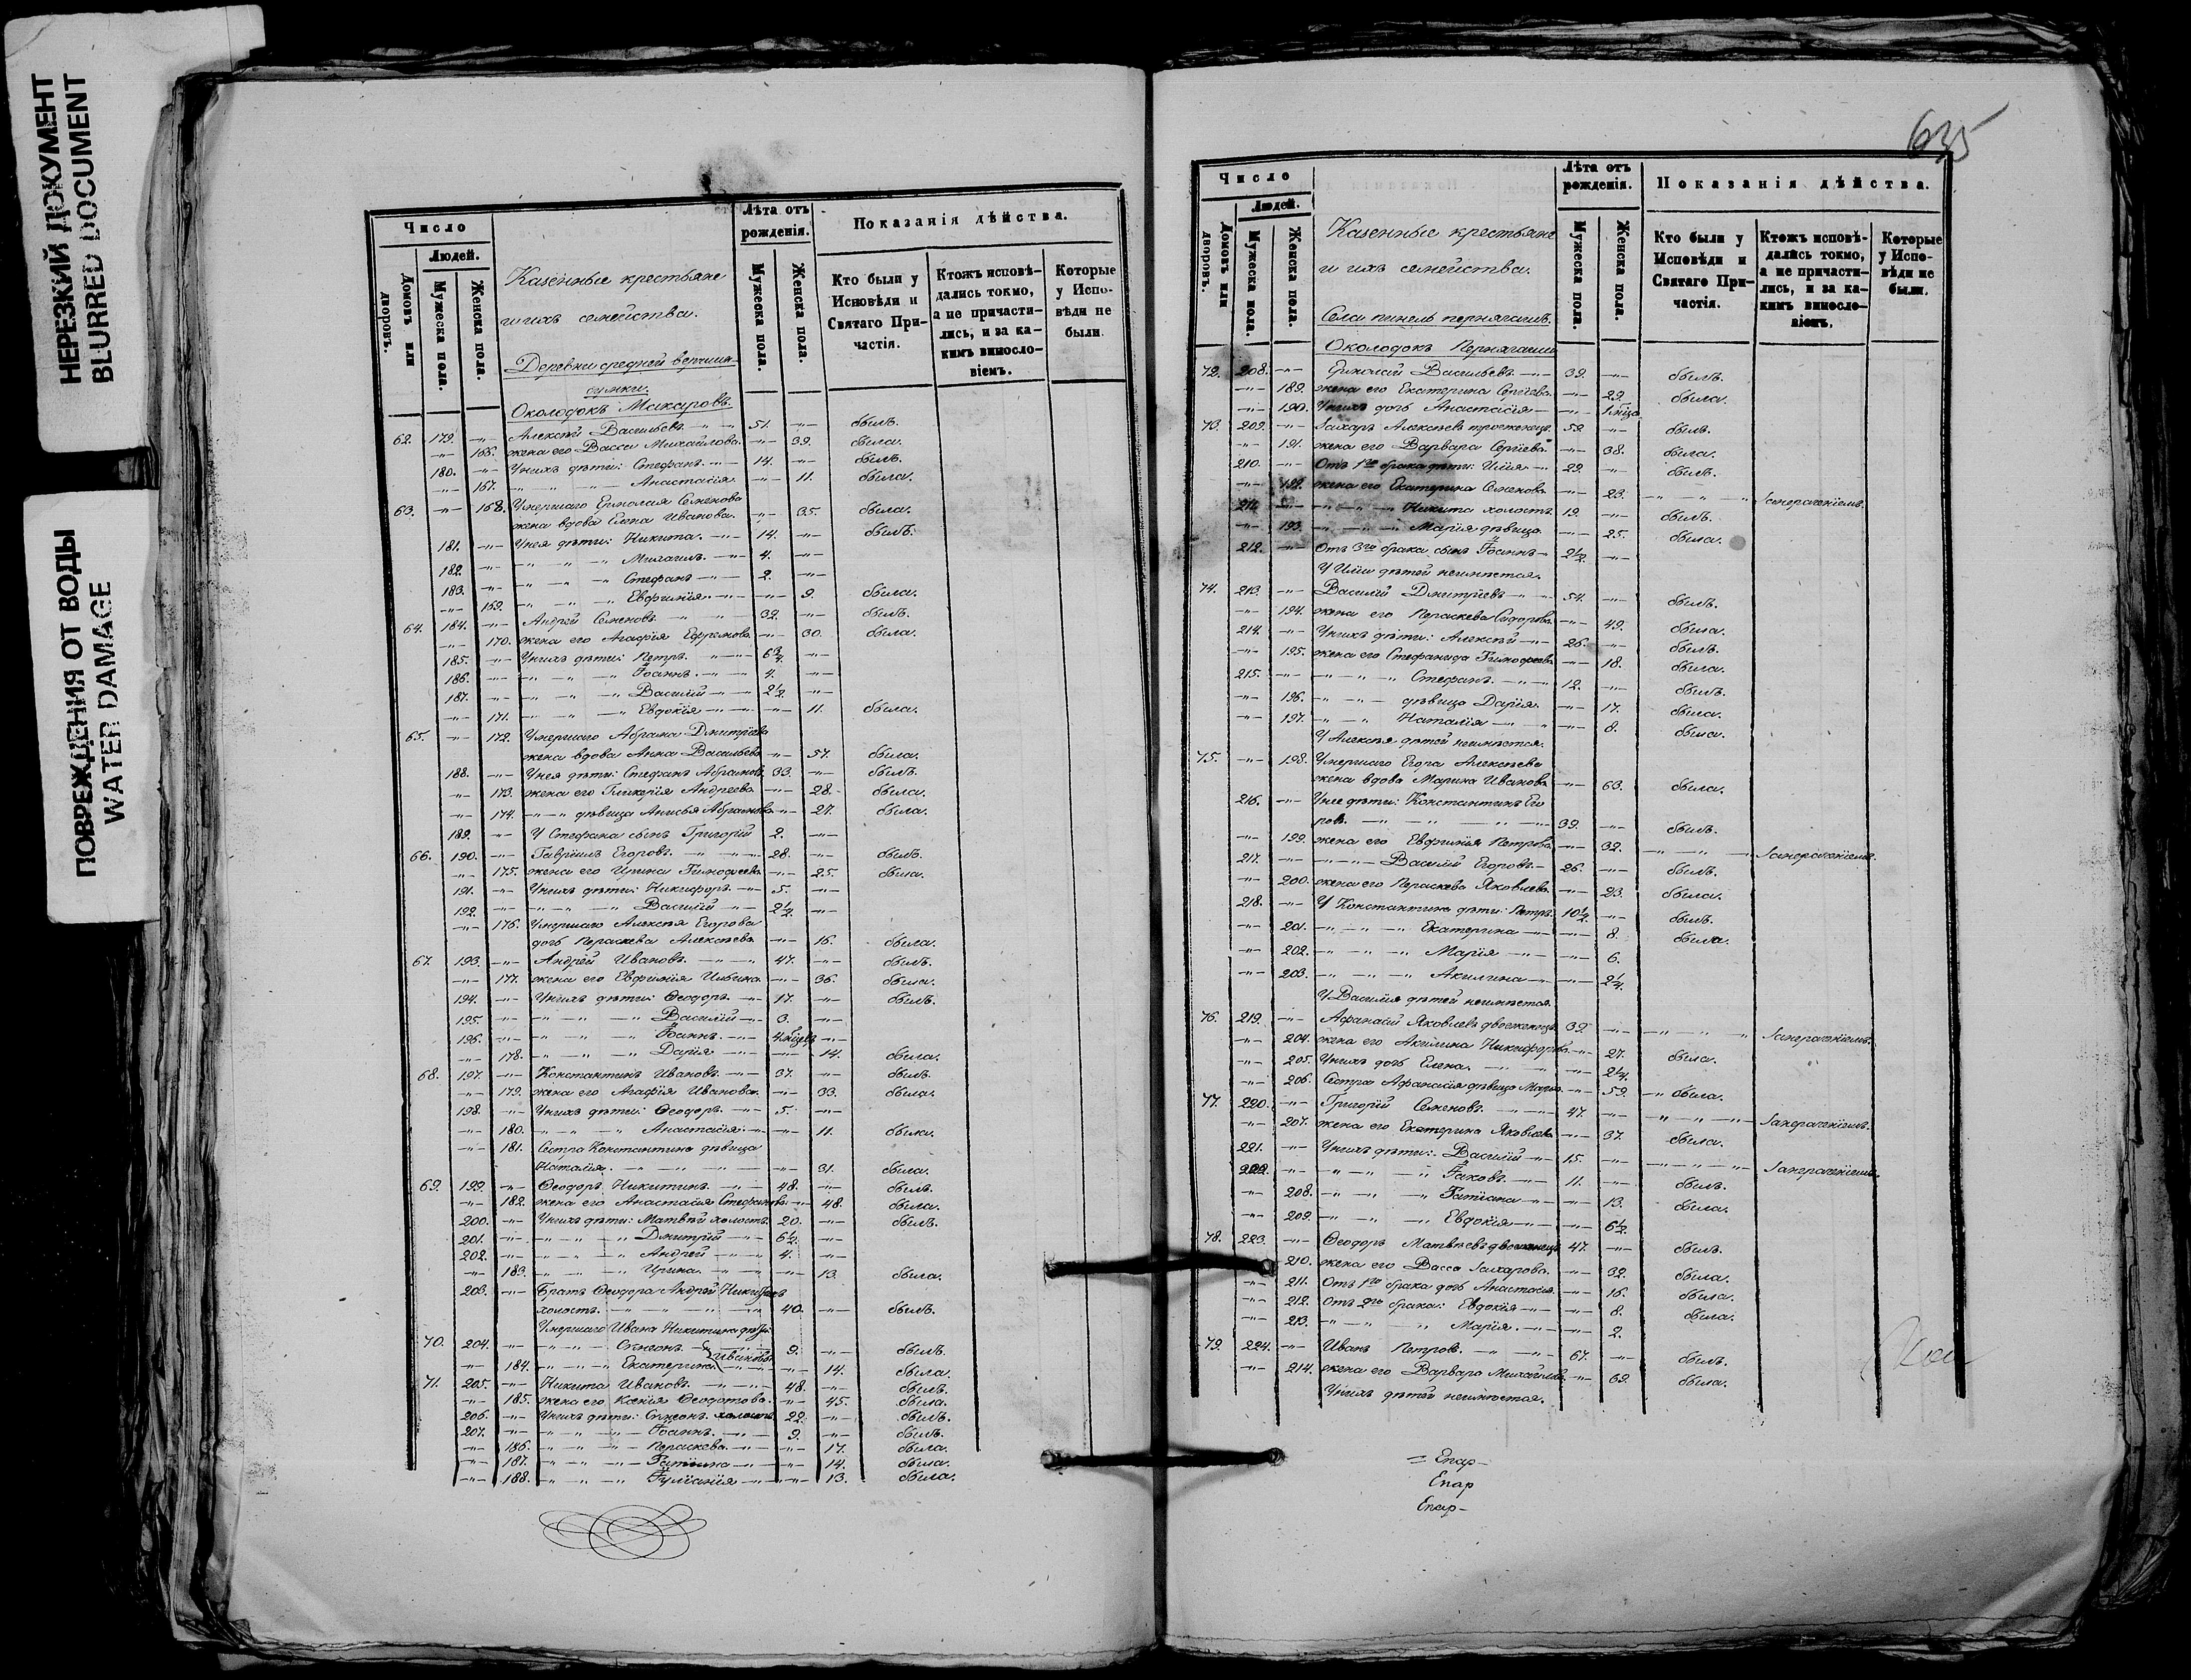 НЕРЕЗКИЙ ДОКУМЕНТ
BLURRED DOCUMENT
ПОВРЕЖДЕНИЯ ОТ ВОДЫ
WATER DAMAGE
Число
Людей.
Домовъ или дворовъ.
Мужеска пола.
Женска пола.
Казенные крестьяне
и ихъ семейства.
Деревни средней
Околодокъ Макаровъ.
Лѣта отъ рожденія.
Мужеска пола.
Женска пола.
Показанія дѣйства.
Кто были у Исповѣди и Святаго Причастія.
Ктожъ исповѣдались токмо, а не причастились, и за какимъ винословіемъ.
Которые у Исповѣди не были.
62. 179. -"- Алексѣй Васильевъ -"- 51. -"- былъ.
-"- 166. жена его Васса Михайлова. -"- 39. была.
180. -"- У нихъ дѣти: Стефанъ -"- 14. -"- былъ.
-"- 167. -"- -"- Анастасія -"- 11. была.
63. -"- 168. Умершаго Ермолая Семенова
жена вдова Елена Иванова. -"- 35. была.
181. -"- У нея дѣти: Никита. -"- 14. -"- былъ.
182. -"- -"- -"- Михаилъ -"- 4. -"-
183. -"- -"- -"- Стефанъ -"- 2. -"-
-"- 169. -"- -"- Евфимія -"- 9. была.
64. 184. -"- Андрей Семеновъ -"- 32. -"- былъ.
-"- 170. жена его Агафія Ефремова -"- 30. была.
185. -"- У нихъ дѣти: Петръ -"- 6¾. -"-
186. -"- -"- -"- Іоаннъ -"- 4. -"-
187. -"- -"- -"- Василій -"- 2½. -"-
-"- 171. -"- -"- Евдокія -"- 11. была.
65. -"- 172. Умершаго Абрама Дмитріева
жена вдова Анна Васильева -"- 57. была.
188. -"- У нея дѣти: Стефанъ Абрамовъ. 33. -"- былъ.
-"- 173. жена его Гликерія Андреева -"- 28. была.
-"- 174. -"- дѣвица Анисья Абрамова -"- 27. была.
189. -"- У Стефана сынъ Григорій 2. -"-
66. 190. -"- Гавріилъ Егоровъ. -"- 28. -"- былъ.
-"- 175. жена его Ирина Тимофеева -"- 25. была.
191. -"- У нихъ дѣти: Никифоръ -"- 5. -"-
192. -"- -"- -"- Василій -"- 2½. -"-
-"- 176. Умершаго Алексѣя Егорова
дочь Параскева Алексѣева -"- 16. была.
67. 193. -"- Андрей Ивановъ. -"- 47. -"- былъ.
-"- 177. жена его Евфимія Ильина -"- 36. была.
194. -"- У нихъ дѣти: Ѳеодоръ -"- 17. -"- былъ.
195. -"- -"- -"- Василій -"- 3. -"-
196. -"- -"- -"- Іоаннъ. -"- 4 мѣсяц. -"-
-"- 178. -"- -"- Дарія -"- 14. была.
68. 197. -"- Константинъ Ивановъ -"- 37. -"- былъ.
-"- 179. жена его Агафія Иванова. -"- 33. была.
198. -"- У нихъ дѣти: Ѳеодоръ. -"- 5. -"-
-"- 180. -"- -"- Анастасія -"- 11. была.
-"- 181. Сестра Константина дѣвица
Наталія. -"- 31. была.
69. 199. -"- Ѳеодоръ Никитинъ -"- 48. -"- былъ.
-"- 182. жена его Анастасія Стефанова -"- 48. была.
200. -"- У нихъ дѣти: Матвѣй холостъ 20. -"- былъ.
201. -"- -"- -"- Дмитрій -"- 6½. -"-
202. -"- -"- -"- Андрей -"- 4. -"-
-"- 183. -"- -"- Ирина. -"- 13. была.
203. -"- Братъ Ѳеодора Андрей Никитинъ
холостъ. -"- 40. -"- былъ.
Умершаго Ивана Никитина дѣти:
70. 204. -"- -"- Симеонъ. Ивановы 9. -"- былъ.
-"- 184. -"- -"- Екатерина -"- 14. была.
71. 205. -"- Никита Ивановъ. -"- 48. -"- былъ.
-"- 185. жена его Ксенія Ѳеодотова. -"- 45. была.
206. -"- У нихъ дѣти: Симеонъ холостъ 22. -"- былъ.
207. -"- -"- -"- Іоаннъ. -"- 9. -"- былъ.
-"- 186. -"- -"- Параскева. -"- 17. была.
-"- 187. -"- -"- Татіана -"- 14. была.
-"- 188. -"- -"- Іуліанія -"- 13. была.
635
Число
Людей.
Домовъ или дворовъ.
Мужеска пола.
Женска пола.
Казенные крестьяне
и ихъ семейства.
Села
Околодокъ Пернягаши
Лѣта отъ рожденія.
Мужеска пола.
Женска пола.
Показанія дѣйства.
Кто были у Исповѣди и Святаго Причастія.
Ктожъ исповѣдались токмо, а не причастились, и за какимъ винословіемъ.
Которые у Исповѣди не были.
72. 208. -"- Ермолай Васильевъ -"- 39. -"- былъ.
-"- 189. жена его Екатерина Сергѣева. -"- 29. была.
-"- 190. У нихъ дочь Анастасія -"- 1 мѣсяц.
73. 209. -"- Захаръ Алексѣевъ троеженецъ 59. -"- былъ.
-"- 191. жена его Варвара Сергѣева -"- 38. была.
210. -"- Отъ 1го брака дѣти: Илія -"- 22. -"- былъ.
-"- 192. жена его Екатерина Семенова -"- 23. -"- За нерачѣніемъ.
211. -"- -"- Никита холостъ. 19. -"- былъ.
-"- 193. -"- -"- Марія дѣвица -"- 25. была.
212. -"- Отъ 3го брака сынъ Іоаннъ -"- 2½. -"-
У Иліи дѣтей неимѣется.
74. 213. -"- Василій Дмитріевъ -"- 54. -"- былъ.
-"- 194. жена его Параскева Сидорова. -"- 49. была.
214. -"- У нихъ дѣти: Алексѣй -"- 26. -"- былъ.
-"- 195. жена его Стефанида Тимофеева -"- 18. была.
215. -"- -"- -"- Стефанъ. -"- 12. -"- былъ.
-"- 196. -"- дѣвица Дарія. -"- 17. была.
-"- 197. -"- -"- Наталія -"- 8. была.
У Алексѣя дѣтей неимѣется.
75. -"- 198. Умершаго Егора Алексѣева
жена вдова Марина Иванова -"- 63. была.
216. -"- У нее дѣти: Константинъ Его
ровъ. -"- 39. -"- былъ.
-"- 199. жена его Евфимія Петрова -"- 32. -"- За нерачѣніемъ.
217. -"- -"- Василій Егоровъ -"- 26. -"- былъ.
-"- 200. жена его Параскева Яковлева. -"- 23. была.
218. -"- У Константина дѣти: Петръ 10½. -"- былъ.
-"- 201. -"- -"- Екатерина -"- 8. была.
-"- 202. -"- -"- Марія -"- 6.
-"- 203. -"- -"- Акилина -"- 2¼.
У Василія дѣтей неимѣется.
76. 219. -"- Афанасій Яковлевъ двоеженецъ 39. -"- За нерачѣніемъ.
-"- 204. жена его Акилина Никифорова. -"- 27. была.
-"- 205. У нихъ дочь Елена. -"- 2¼.
-"- 206. Сестра Афанасія дѣвица Марія. -"- 59. -"- была.
77. 220. -"- Григорій Семеновъ. -"- 47. -"- За нерачѣніемъ.
-"- 207. жена его Екатерина Яковлева -"- 37. была.
221. -"- У нихъ дѣти: Василій -"- 15. -"- За нерачѣніемъ.
222. -"- -"- -"- Іаковъ -"- 11. -"- былъ.
-"- 208. -"- -"- Татіана -"- 13. была.
-"- 209. -"- -"- Евдокія -"- 6½.
78. 223. -"- Ѳеодоръ Матвѣевъ двоеженецъ 47. -"- былъ.
-"- 210. жена его Васса Захарова. -"- 32. была.
-"- 211. Отъ 1го брака дочь Анастасія. -"- 16. была.
-"- 212. Отъ 2го брака: Евдокія -"- 8. была.
-"- 213. -"- -"- Марія. -"- 2.
79. 224. -"- Иванъ Петровъ. -"- 67. -"- былъ.
-"- 214. жена его Варвара Михайлова -"- 69. была.
У нихъ дѣтей неимѣется.
= Епар-
Епар
Епар-